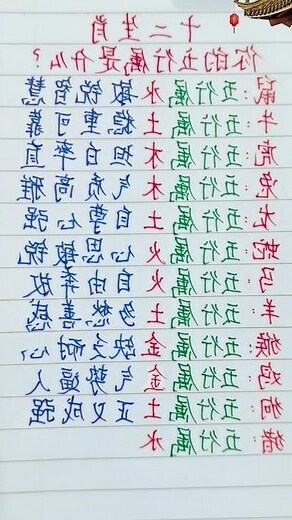 十二生肖
你的五行属是什么？
鼠：五行属水敏锐智慧
牛：五行属土稳重可靠
虎：五行属木坦白率直
兔：五行属木气质高雅
龙：五行属土自尊心强
蛇：五行属火心思敏锐
马：五行属火自由奔放
羊：五行属土多愁善感
猴：五行属金缺乏耐心
鸡：五行属金气势逼人
狗：五行属土正义成强
猪：五行属水